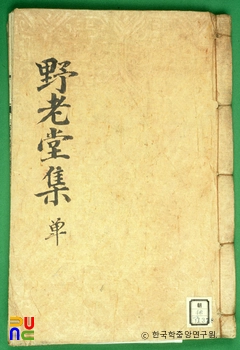 野老堂集
単
© 한국학중앙연구원